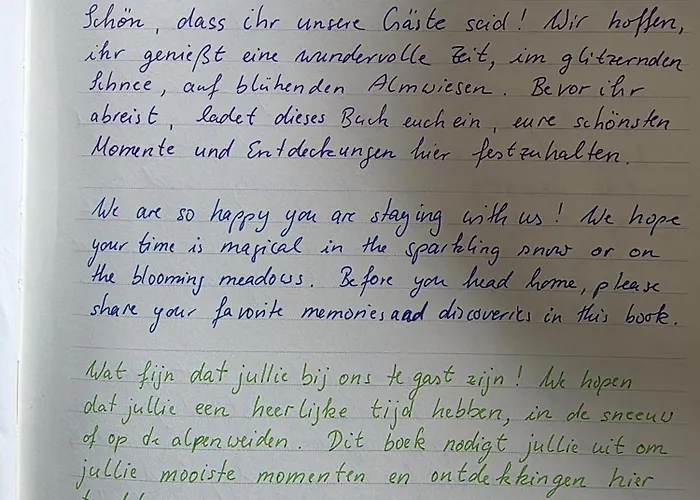 Schön, dass ihr unsere Gäste seid! Wir hoffen,
ihr genießt eine wundervolle Zeit, im glitzernden
Schnee, auf blühenden Almwiesen. Bevor ihr
abreist, ladet dieses Buch euch ein, eure schönsten
Momente und Entdeckungen hier festzuhalten.
We are so happy you are staying with us! We hope
your time is magical in the sparkling snow or on
the blooming meadows. Before you head home, please
share your favorite memories and discoveries in this book.
Wat fijn dat jullie bij ons te gast zijn! We hopen
dat jullie een heerlijke tijd hebben, in de sneeuw
of op de alpenweiden. Dit boek nodigt jullie uit om
jullie mooiste momenten en ontdekkingen hier